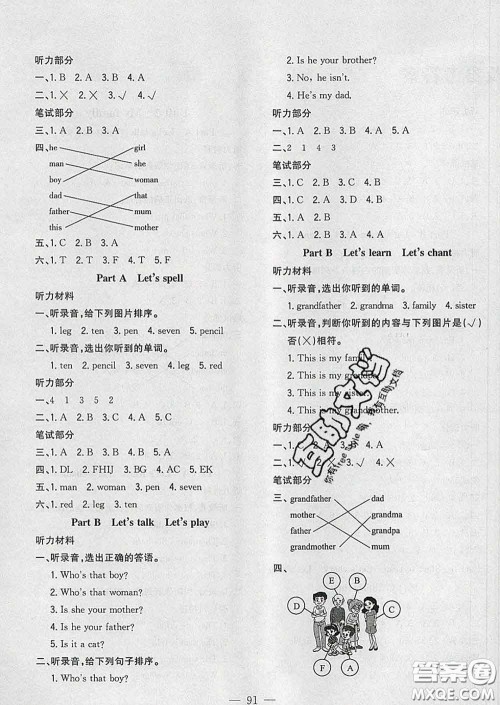 听力部分
一、1. B 2. A 3. B 4. A
二、1. ╳ 2. ╳ 3. √ 4. √
笔试部分
三、1. A 2. B 3. A
四、he girl
man she
boy woman
dad that
father mum
this mother
五、1. C 2. B 3. A
六、1. T 2. T 3. F 4. T 5. F
Part A Let's spell
听力材料
一、听录音,给下列图片排序。
1. leg 2. ten 3. pen 4. red 5. pencil
二、听录音,选出你听到的单词。
1. ten 2. pencil 3. leg 4. seven 5. red
听力部分
一、4 1 3 5 2
二、1. B 2. A 3. B 4. A 5. A
笔试部分
三、1. B 2. B 3. A 4. B 5. A
四、1. DL 2. FHIJ 3. BG 4. AC 5. EK
五、1. man 2. red 3. ten 4. pen
六、1. pen 2. red 3. leg 4. ten
Part B Let's talk Let's play
听力材料
一、听录音,选出正确的答语。
1. Who's that boy?
2. Who's that woman?
3. Is she your mother?
4. Is he your father?
5. Is it a cat?
二、听录音,给下列句子排序。
1. Who's that boy?
2. Is he your brother?
3. No, he isn't.
4. He's my dad.
听力部分
一、1. B 2. A 3. B 4. A 5. B
二、2 1 4 3
笔试部分
三、1. B 2. A 3. B 4. A
四、1. C 2. B 3. A 4. D
五、1. A 2. B 3. B
Part B Let's learn Let's chant
听力材料
一、听录音,选出你听到的单词。
1. grandfather 2. grandma 3. family 4. sister
二、听录音,判断你听到的内容与下列图片是(√)
否(╳)相符。
1. This is my family.
2. This is my
3. This is my sister.
4. This is my
听力部分
一、1. B 2. A
二、1. √ 2. √ ╳
笔试部分
三、grandfather dad
mother grandma
father grandpa
grandmother mum
四、
E B
D C
F A
91
互助文档
答案圈
MXQE.COM